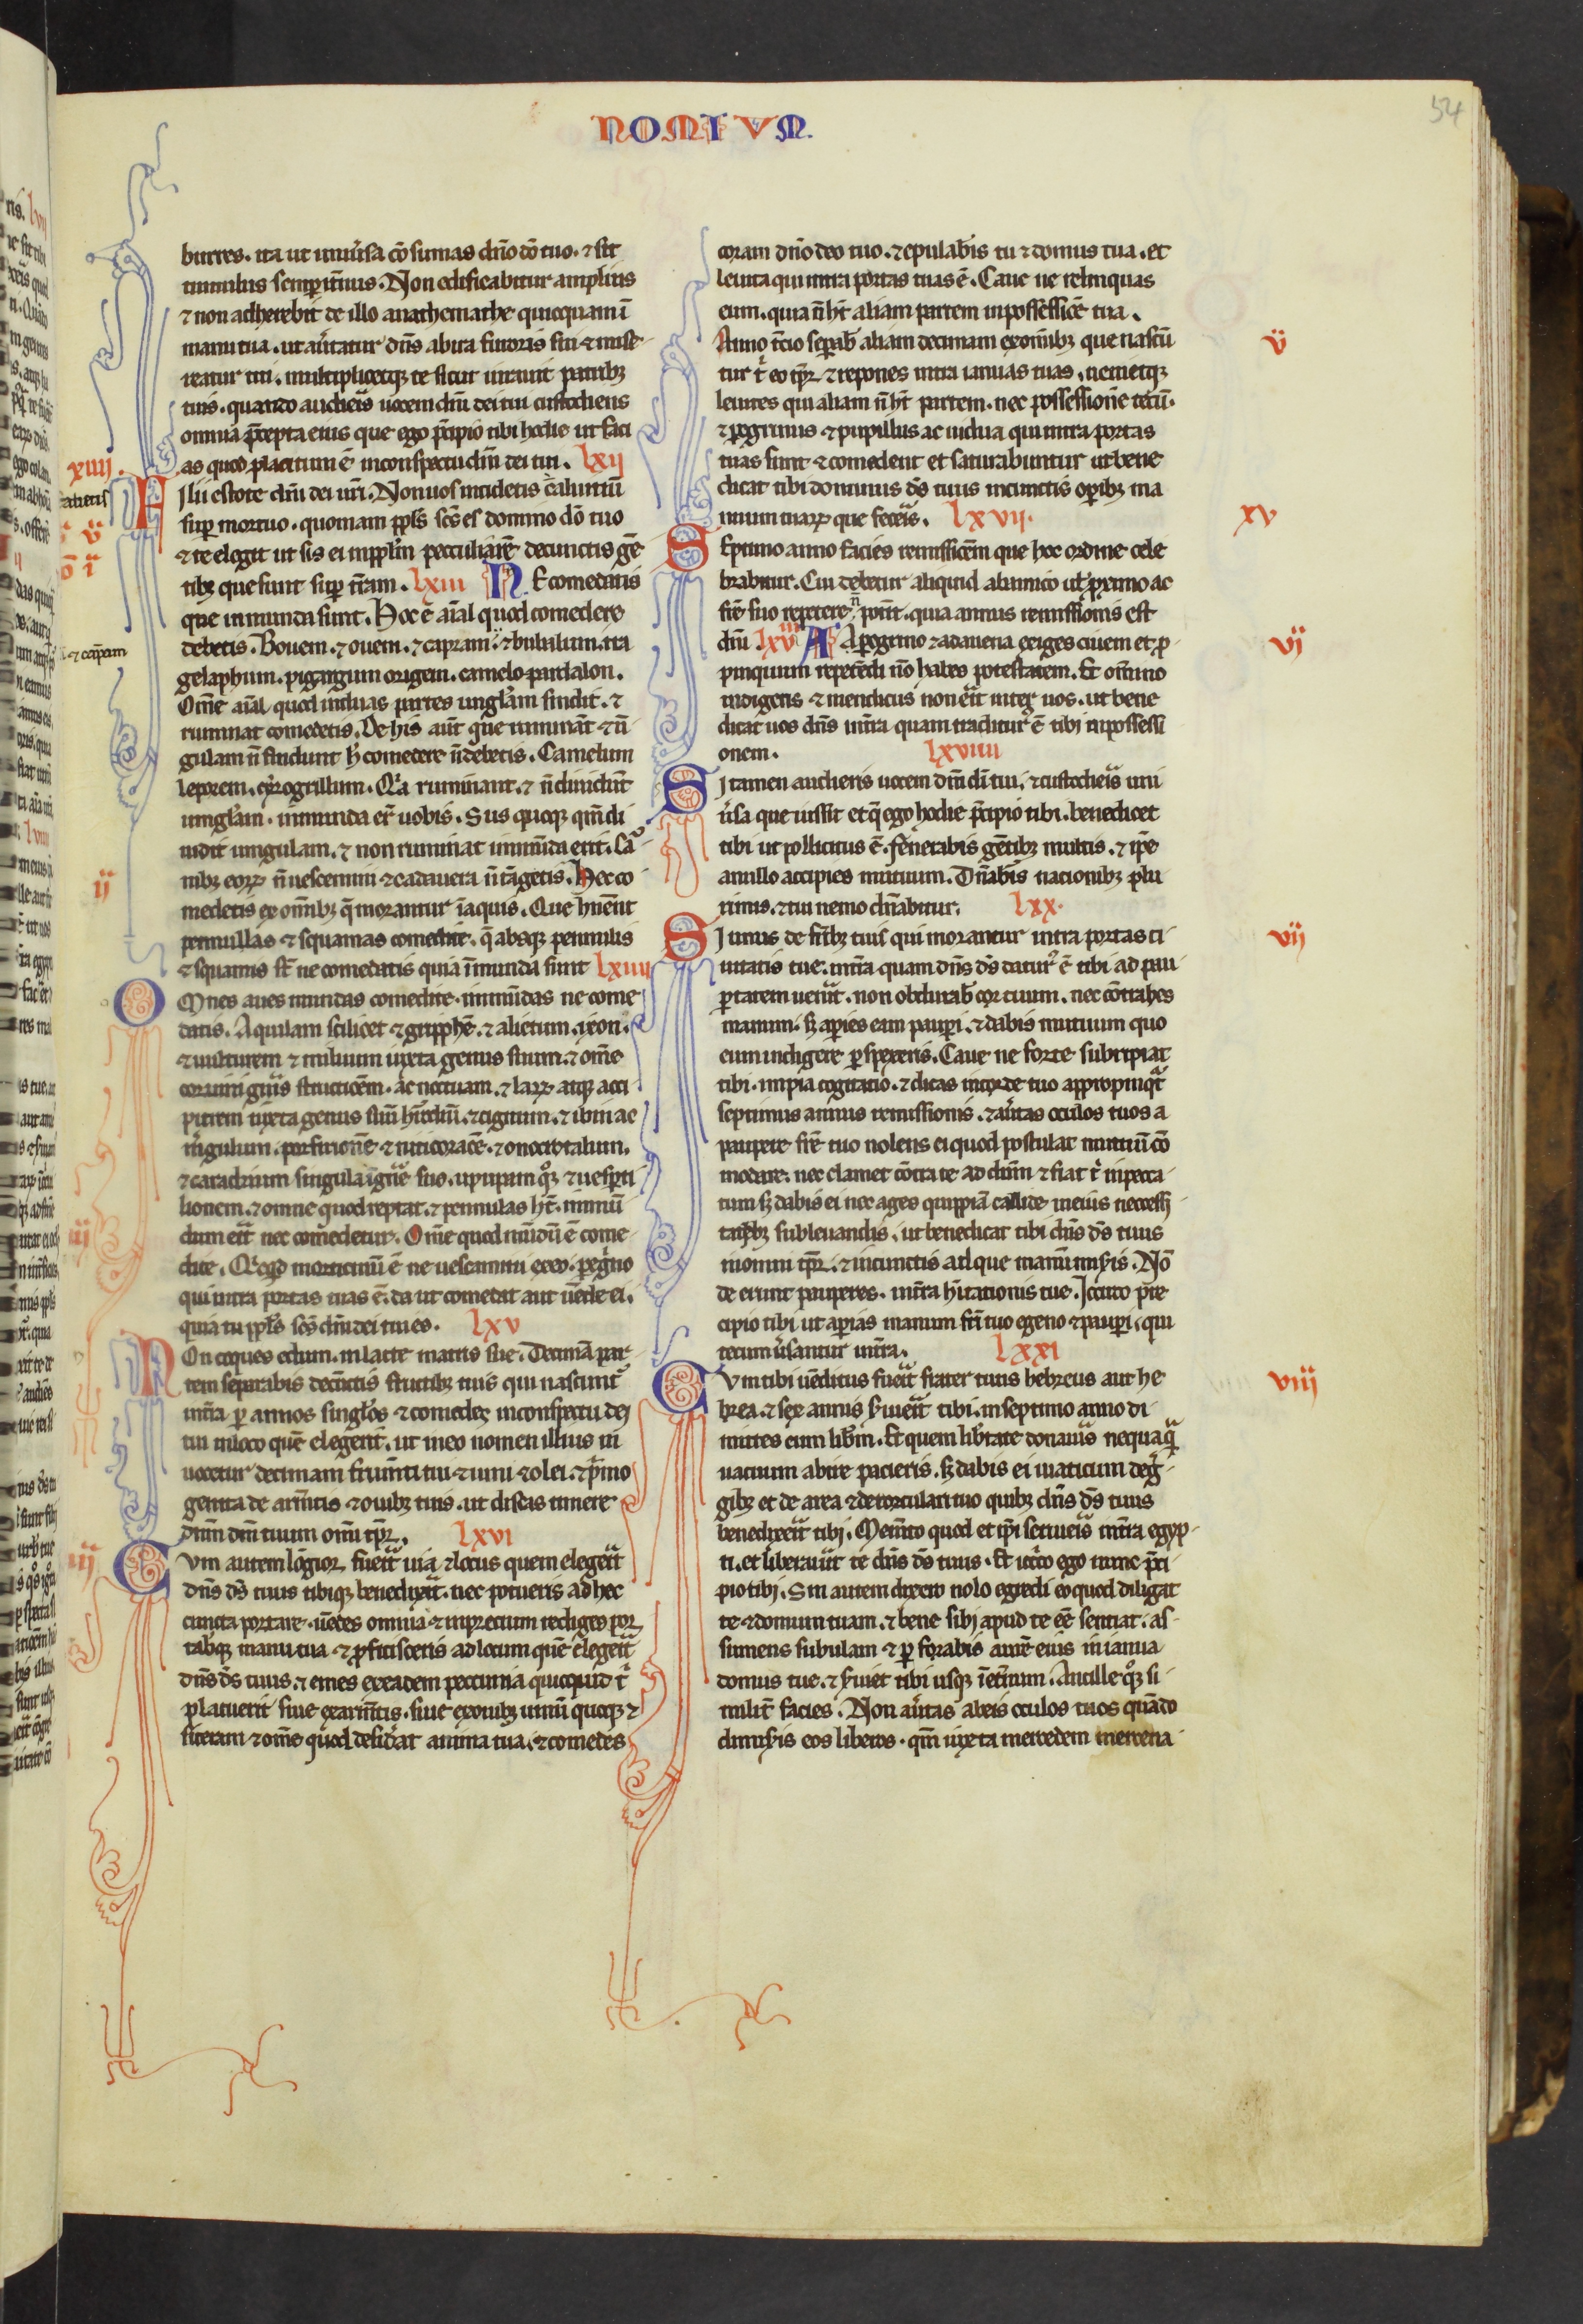 NOMIVM.
54
burres. ita ut uniũsa cõsumas dño dõ tuo. ⁊ sit
tumulus semp̱it̃nus. Non edificabitur amplius
⁊ non adherebit de illo anathemathe quicquam ĩ
manu tua. ut aũtatur dñs ab ira furoris sui ⁊ mise
reatur tui. multiplicetq; te sicut iurauit patrib;
tuis. quando audieris uocem dñi dei tui custodiens
omnia p̃cepta eius que ego p̃cipio tibi hodie ut faci
as quod placitum ẽ in conspectu dñi dei tui. lxij
xiiij.
FIlii estote dñi dei ur̃i. Non uos incidetis c̃aluitiũ
sup̱ mortuo. quoniam pp̱ls sc̃s es domino dõ tuo
⁊ te elegit ut sis ei in pp̱lm pecculiarẽ de cunctis gẽ
tib; que sunt sup̱ t̃ram. lxiii NE comedatis
que inmunda sunt. Hoc ẽ aĩal quod comedere
debetis. Bouem. ⁊ ouem. ⁊ capram. ⁊ bubalum. tra
⁊ cap̃am
gelaphum. pigargum origem. camelo pardalon.
Om̃e aĩal quod in duas partes unglam findit. ⁊
ruminat comedetis. De his aũt que ruminãt ⁊ ũ
gulam ñ findunt h̃ comedere ñ debetis. Camelum
leporem. cyrogrillum. Qr̃a ruminant. ⁊ ñ diuidũt
unglam. inmunda er̃t uobis. Sus quoq; qm̃ di
uidit ungulam. ⁊ non ruminat inmũda erit. Car̃
ij
nib; eorꝝ ñ uescemini ⁊ cadauera ñ tãgetis. Hec co
medetis ex om̃ib; q̃ morantur ĩ aquis. Que h̃uent
pennullas ⁊ squamas comedite. q̃ absq; pennulis
⁊ squamis st̃ ne comedatis quia ĩmunda sunt lxiiij
OMnes aues mundas comedite. inmũdas ne come
datis. Aquilam scilicet ⁊ gripphẽ. ⁊ alietum. ixon.
⁊ uulturem ⁊ miluum iuxta genus suum. ⁊ om̃e
coruini gũis strucicẽm. ac noctuam. ⁊ larꝝ atq; acci
pitrem iuxta genus suũ h̃rodiũ. ⁊ cignum. ⁊ ibin ac
m̃gulum. porfirionẽ ⁊ nicticoracẽ. ⁊ onocrotalum.
⁊ caradrium singula ĩ gñe suo. upupam q̊; ⁊ uesp̱ti
lionem. ⁊ omne quod reptat. ⁊ pennulas h̃t. inmũ
iij
dum erit nec comedetur. Om̃e quod mũdũ ẽ come
dite. Qicqd morticinũ ẽ ne uescamini ex eo. p̱eg̃no
qui intra portas tuas ẽ. da ut comedat aut uẽde ei.
quia tu pp̱ls sc̃s dñi dei tui es. lxv
NOn coques edum in lacte matris sue. Decimã par
tem separabis de cũctis fructib; tuis qui nascunt̃
in t̃ra p̱ annos singlos ⁊ comedes in conspectu dei
tui in loco quẽ elegerit. ut in eo nomen illius in
uocetur decimam frum̃ti tui ⁊ uini ⁊ olei. ⁊ p̃mo
genita de arm̃tis ⁊ ouib; tuis. ut discas timere
dñm dm̃ tuum omi tp̱r. lxvi
iiij
CVm autem lõgior fuerit uia ⁊ locus quem elegerit
dñs dš tuus tibiq; benedixerit. nec potueris ad hec
cuncta portare. uẽdes omnia ⁊ in precium rediges por
tabq; manu tua ⁊ p̱ficisceris ad locum quẽ elegerit
dñs dš tuus. ⁊ emes ex eadem peccunia quicquid t̃
placuerit siue ex arm̃tis. siue ex ouib; uinũ quoq; ⁊
siceram ⁊ om̃e quod desiderat anima tua. ⁊ comedes
coram dño deo tuo. ⁊ epulabis tu ⁊ domus tua. et
leuita qui intra portas tuas ẽ. Caue ne relinquas
eum. quia ñ h̃t aliam partem in possessiõe tua.
v
Anno t̃cio sep̱ab aliam decimam ex omib; que nascũ
tur t̃ eo tp̱r. ⁊ repones intra ianuas tuas. uenietq;
leuites qui aliam ñ h̃t partem. nec possessionẽ tecũ.
⁊ p̱egrinus ⁊ pupillus ac uidua qui intra portas
tuas sunt ⁊ comedent et saturabuntur ut bene
dicat tibi dominus dš tuus in cunctis op̱ib; ma
nuum tuarꝝ que feceris. lxvij.
xv
SEptimo anno facies remissiõem que hoc ordine cele
brabitur. Cui debetur aliquid ab amico ul p̱ximo ac
fr̃e suo repetere ñ pot̃it. quia annus remissionis est
vj
dñi lxviii A p̱egrino ⁊ aduena exiges ciuem et p̱
pinquum repetẽdi ño habes potestatem. Et om̃ino
indigens ⁊ mendicus non erit inter uos. ut bene
dicat uos dñs in t̃ra quam traditur̃ ẽ tibi in possessi
onem. lxviiii
SI tamen audieris uocem dñi di tui. ⁊ custodieris uni
ũsa que iussit et q̃ ego hodie p̃cipio tibi. benedicet
tibi ut pollicitus ẽ. fenerabis gẽtib; multis. ⁊ ip̃e
a nullo accipies mutuum. Dñabis nacionib; plu
rimis. ⁊ tui nemo dñabitur. lxx.
vij
SI unus de fr̃ib; tuis qui morantur intra portas ci
uitatis tue. in t̃ra quam dñs dš datur̃ ẽ tibi ad pau
p̱tatem uenerit. non obdurab cor tuum. nec cõtrahes
manum. s; ap̱ies eam paup̱i. ⁊ dabis mutuum quo
eum indigere p̱spexeris. Caue ne forte subripiat
tibi. impia cogitatio. ⁊ dicas in corde tuo appropinqt̃
septimus annus remissionis. ⁊ aũtas oculos tuos a
paupere fr̃e tuo nolens ei quod postulat mutuũ cõ
modare. nec clamet cõtra te ad dñm ⁊ fiat t̃ in pecca
tum s; dabis ei nec ages quippiã callide in eius necessi
tatib; subleuandis. ut benedicat tibi dñs dš tuus
in omni tp̱r. ⁊ in cunctis ad que manũ mis̃is. Nõ
de erunt pauperes. in t̃ra h̃itationis tue. Iccirco p̃e
cipio tibi ut ap̱ias manum fr̃i tuo egeno ⁊ paup̱i. qui
tecum ũsantur in t̃ra. lxxi
viij
CVm tibi uẽditus fuerit frater tuus hebreus aut he
brea. ⁊ sex annis s̃uierit tibi. in septimo anno di
mittes eum lib̃m. Et quem lib̃tate donauis̃ nequaq̃
uacuum abire pacieris. s; dabis ei uiaticum de g̃
gib; et de area ⁊ de torculari tuo quib; dñs dš tuus
benedixerit tibi. Mem̃to quod et ip̱i seruieris in t̃ra egyp
ti. et liberauit te dñs dš tuus. Et iccirco ego nunc p̃ci
pio tibi. Sin autem dixerit nolo egredi eo quod diligat
te ⁊ domum tuam. ⁊ bene sibi apud te eẽ sentiat. as
sumens subulam ⁊ p̱forabis aurẽ eius in ianua
domus tue. ⁊ s̃uiet tibi usq; ĩ et̃num. Ancille q̊; si
milit̃ facies. Non aũtas ab eis oculos tuos quãdo
dimis̃is eos liberos. qm̃ iuxta mercedem mercena